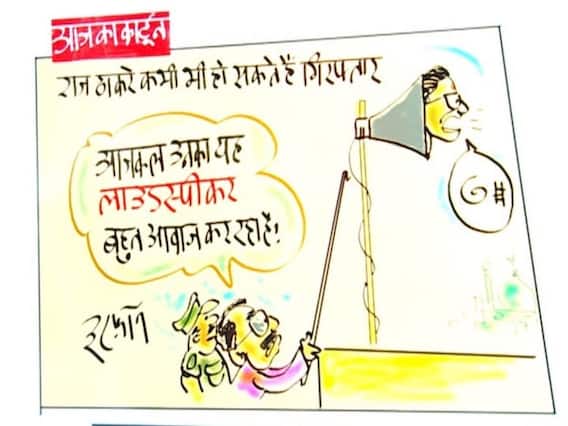 आज का कार्टून
राज ठाकरे कभी भी हो सकते हैं गिरफ्तार
आजकल उनका यह
लाउडस्पीकर
बहुत आवाज कर रहा है!
इरफान